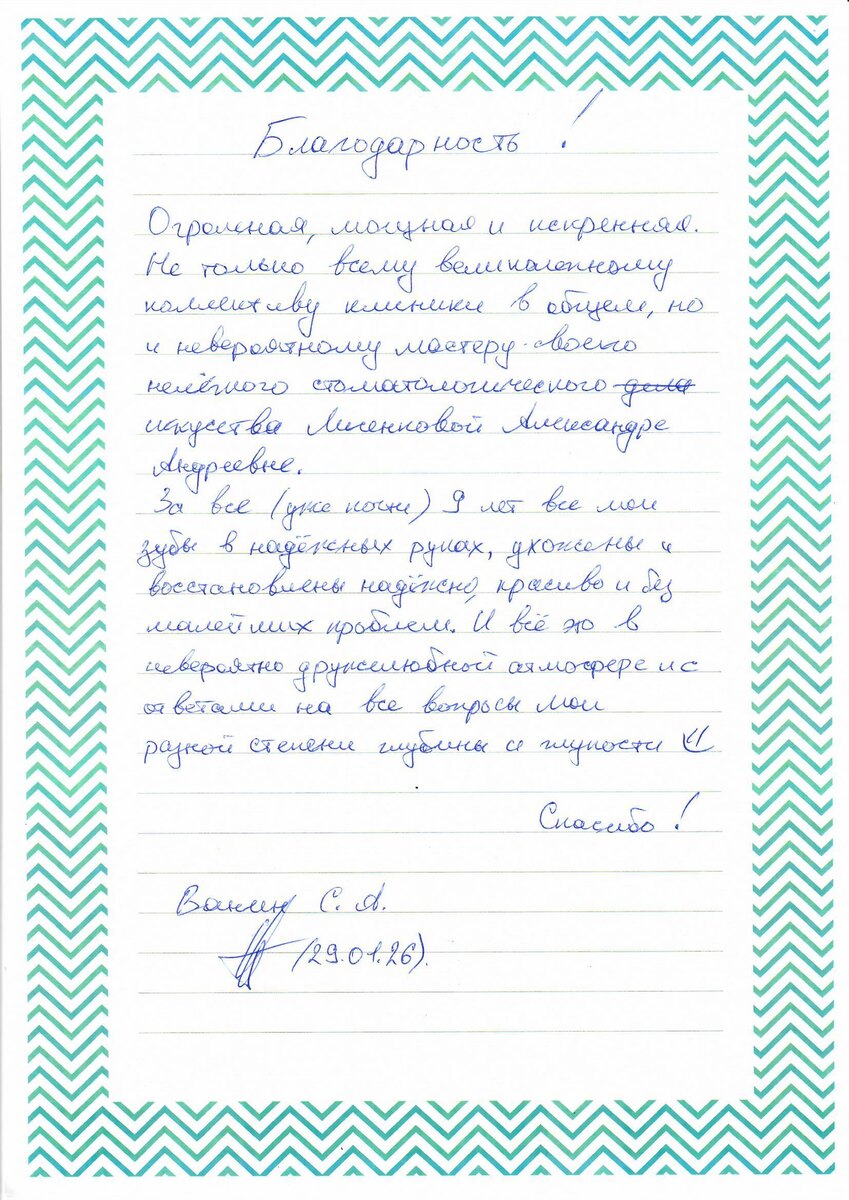 Благодарность!
Огромная, мощная и искренняя.
Не только всему великолепному
коллективу клиники в общем, но
и невероятному мастеру своего
нелёгкого стоматологического дела
искусства Лисенковой Александре
Андреевне.
За все (уже почти) 9 лет все мои
зубы в надёжных руках, ухожены и
восстановлены надёжно, красиво и без
малейших проблем. И всё это в
невероятно дружелюбной атмосфере и с
ответами на все вопросы мои
разной степени глубины и глупости
Спасибо!
Ванин С. А.
(29.01.26).